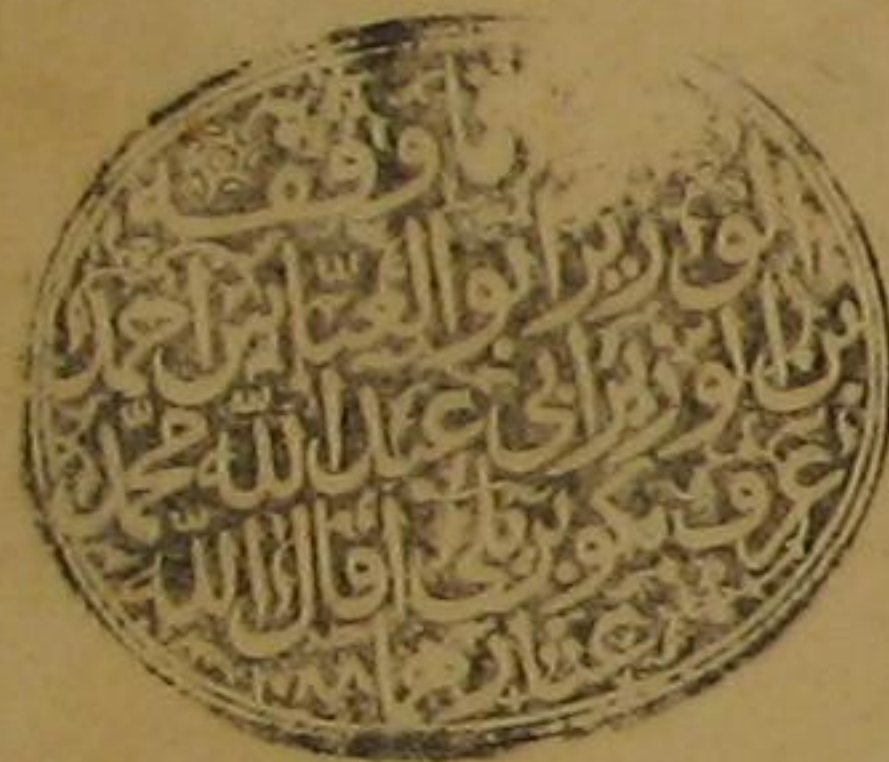 مما وقفه
الوزير ابو العباس احمد
بن الوزير ابي عبد الله محمد
عرف بكوبريلي اقال الله
عثارهما ١٠٨٨